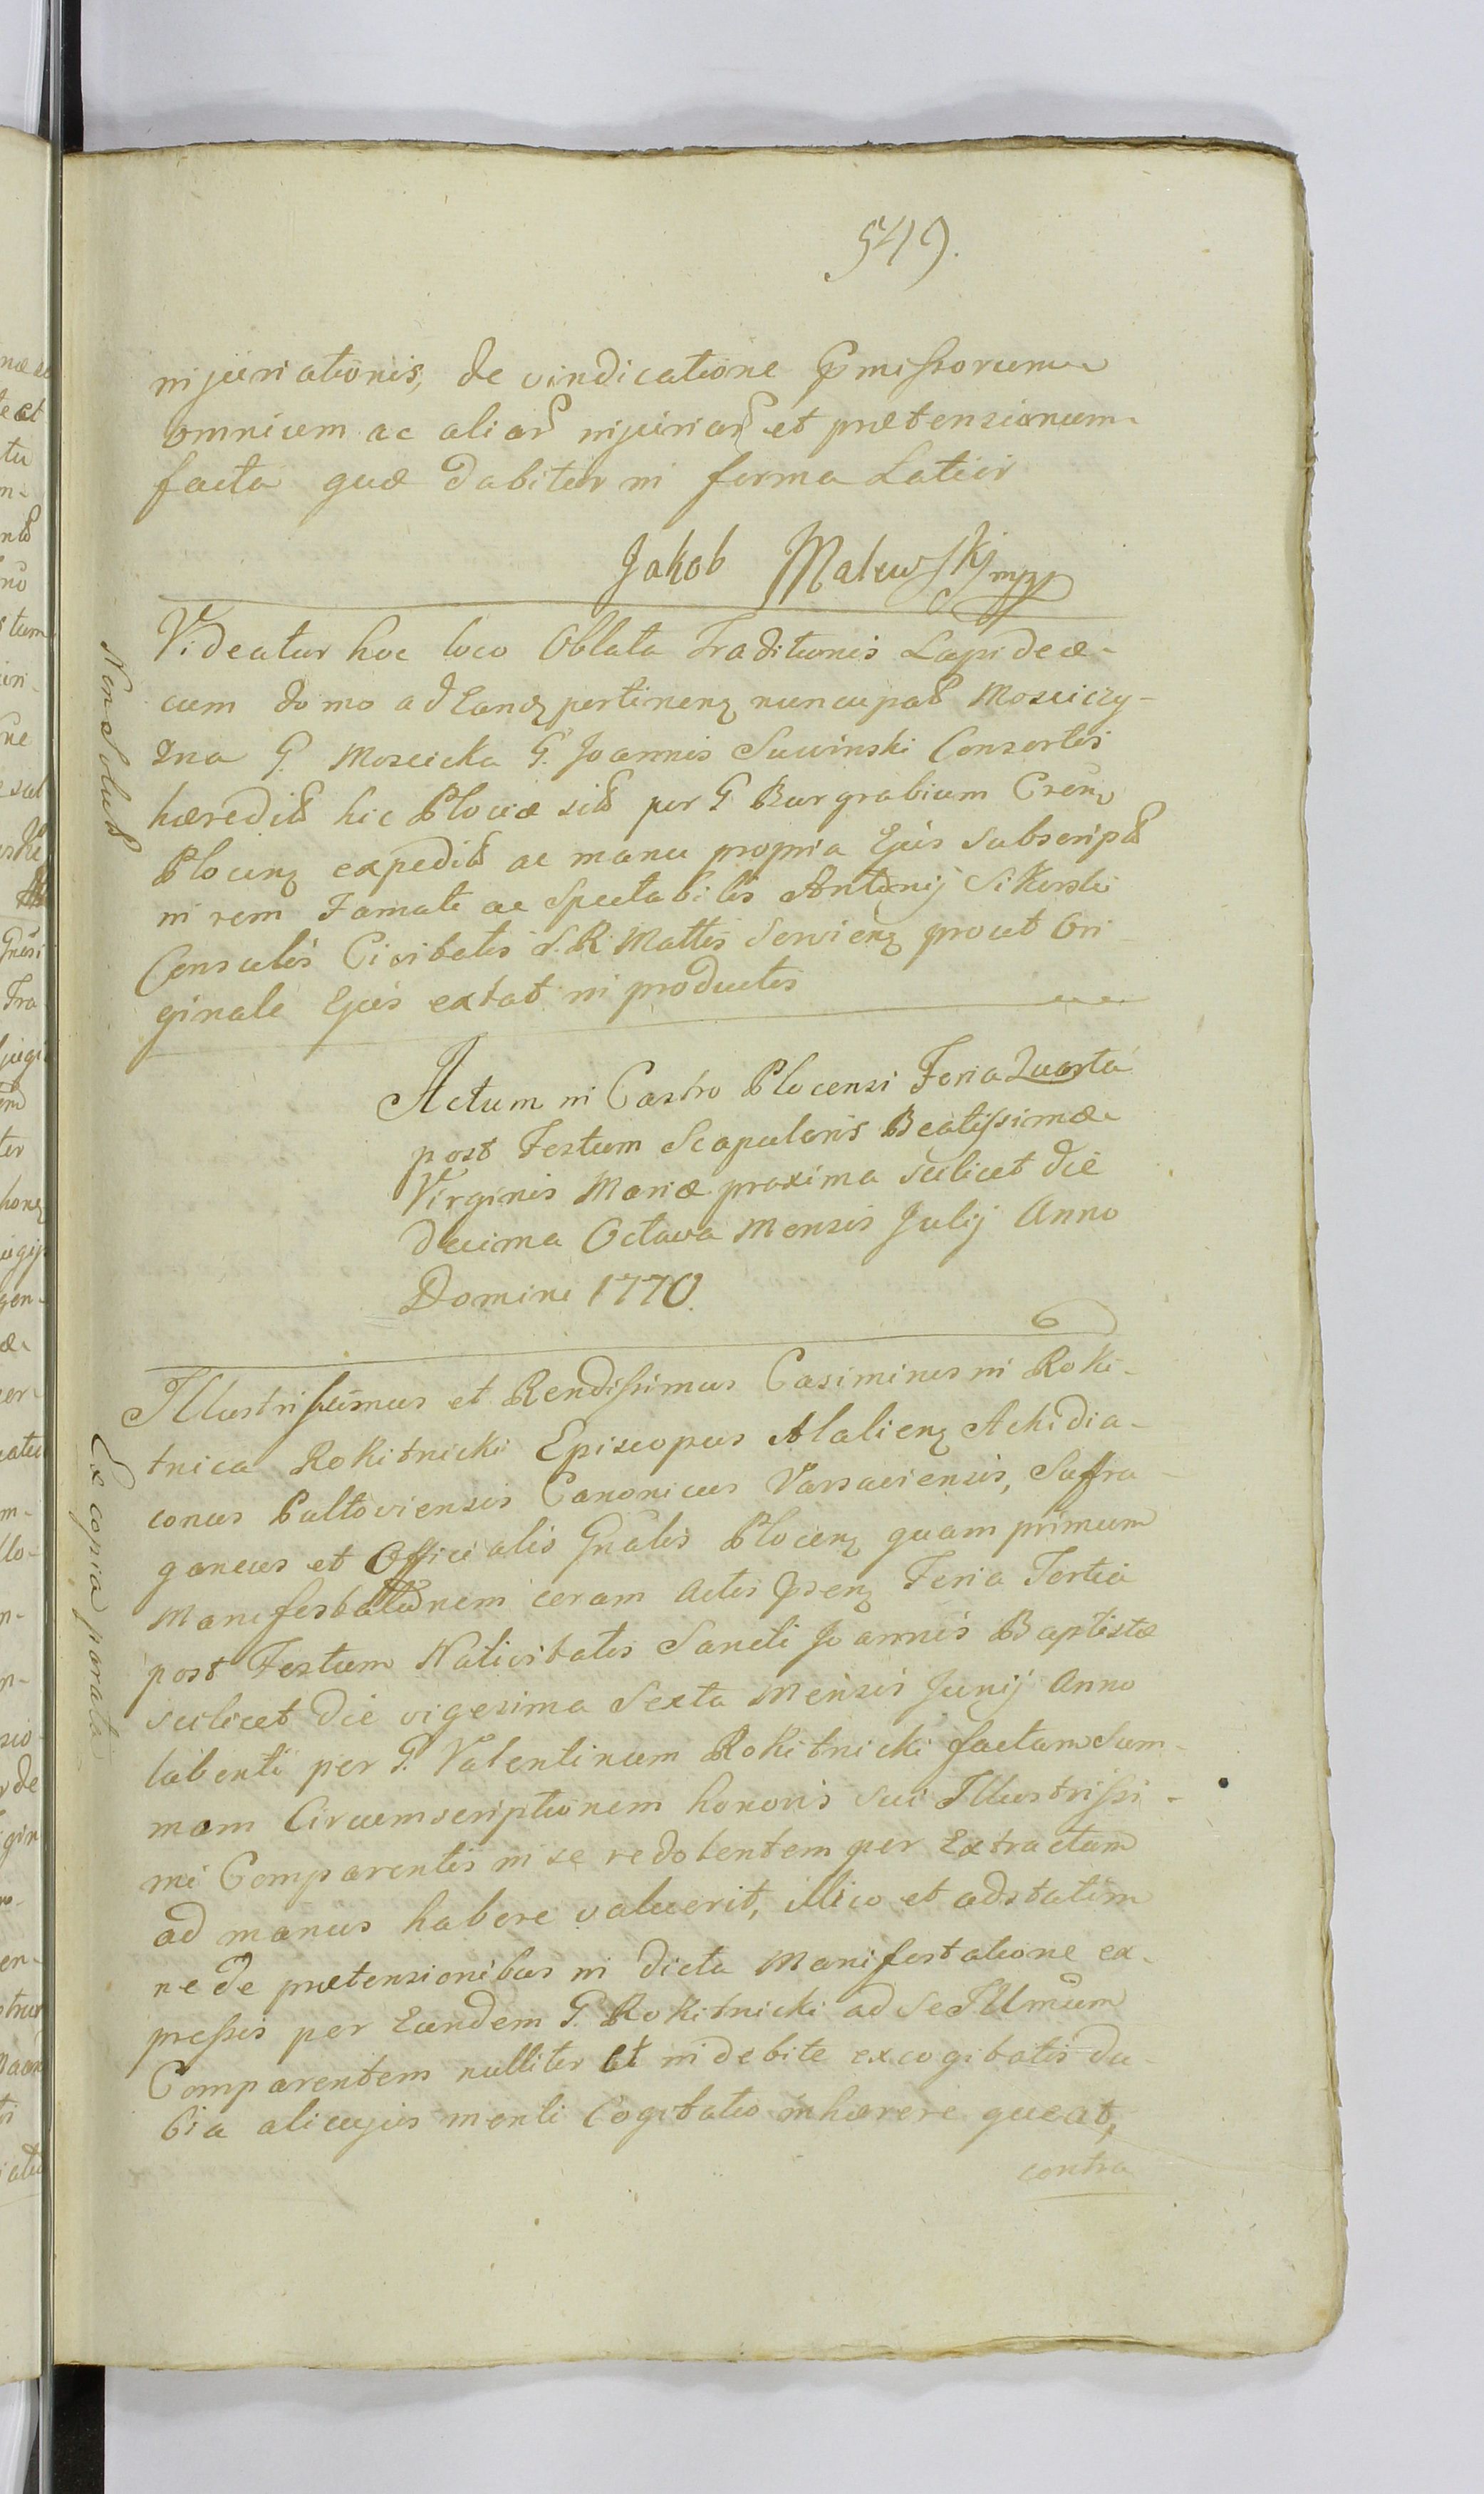 549.
injuriationis, de vindicatione p̃missorum
omnium ac aliar̃ injuriar̃ et prætensionum
facta quæ dabitur in forma Latiori
Jakob Malewskj mpp
Non Solut
Videatur hoc loco Oblata Traditionis Lapideæ
cum domo ad Eand pertinen nuncupat Mosciczy-
zna G. Moscicka G. Joannis Suwinski Consortis
hæredit hic Plociæ sit per G Burgrabium Cren
Plocen expedit ac manu propria Ejus Subscript
in rem Famati ac Spectabilis Antonij Sikorski
Consulis Civitatis S. R. Mattis Servien prout Ori
ginale Ejus extat in productis
Actum in Castro Plocensi Feria Quarta
post Festum Scapularis Beatissimæ
Virginis Mariæ proxima scilicet die
decima Octava Mensis Julij Anno
Domini 1770.
Ex copia parata
Illustrissimus et Rendissimus Casimirus in Roki-
tnica Rokitnicki Episcopus Alalien Achidia-
conus Pultoviensis Canonicus Varsaviensis, Sufra-
ganeus et Officialis Gnalis Plocen quam primum
Manifestationem coram Actis p̃sen Feria Tertia
post Festum Nativitatis Sancti Joannis Baptistæ
scilicet die vigesima Sexta Mensis Junij Anno
labenti per G. Valentinum Rokitnicki factam Sum-
mam Circumscriptionem honoris sui Illustrissi-
mi Comparentis in se redolentem per Extractum
ad manus habere valuerit, illico et adstatim
ne de prætensionibus in dicta Manifestatione ex-
pressis per Eundem G. Rokitnicki ad Se Illmum
Comparentem nulliter et indebite excogitatis du-
bia alicujus menti Cogitatio inhærere queat,
contra